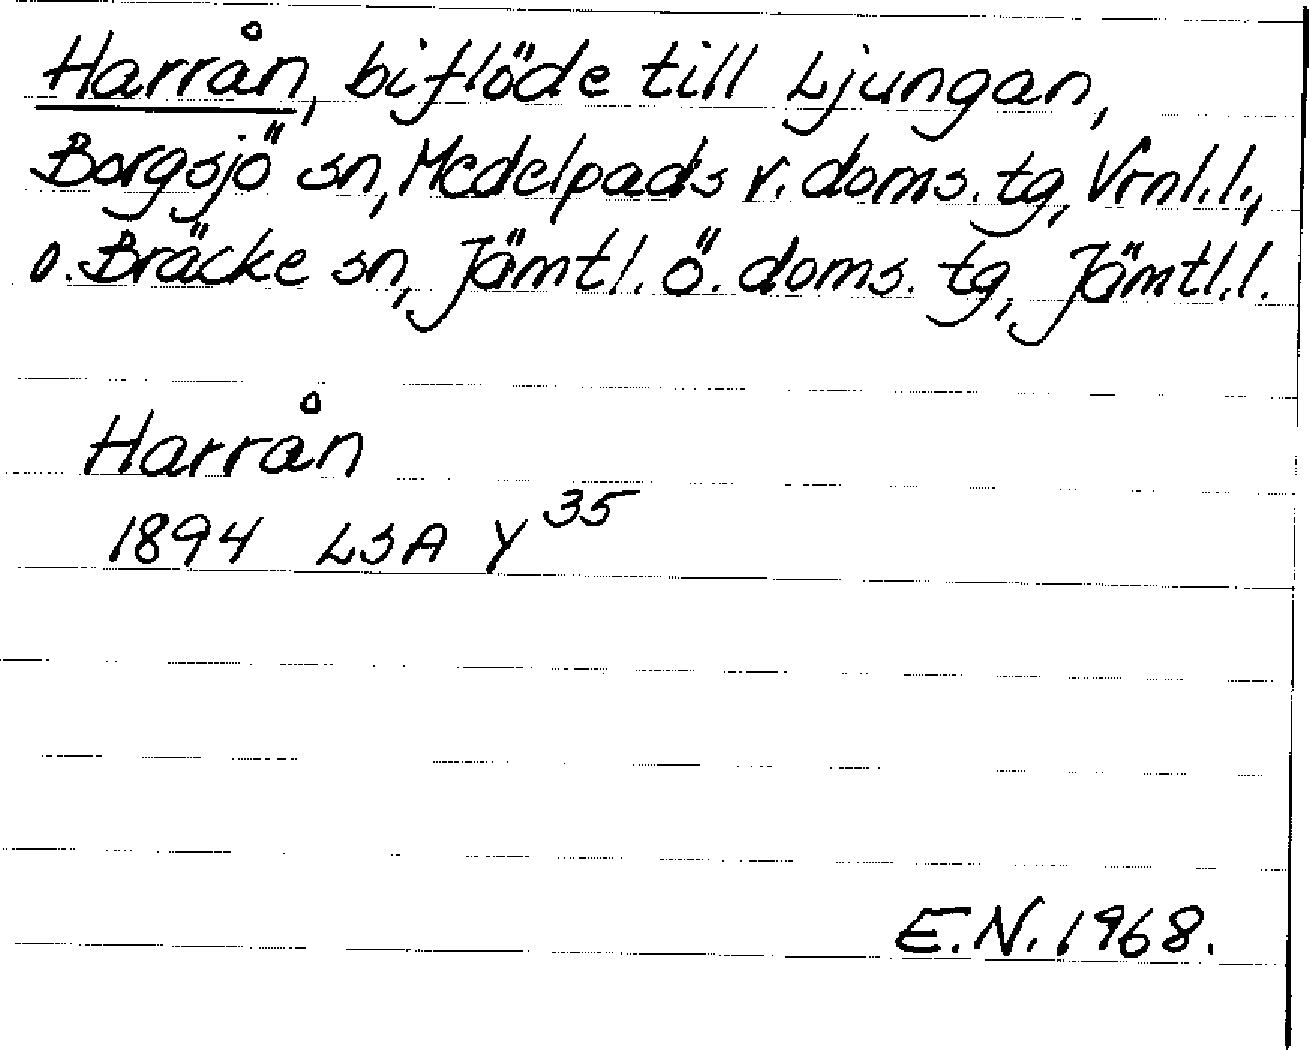 Harrån, biflöde till Ljungan,
Borgsjö sn, Medelpads v. doms. tg, Vrnl.l.,
o. Bräcke sn, Jämtl. ö. doms. tg, Jämtl.l.
Harrån
1894 LSA Y 35
E.N. 1968.